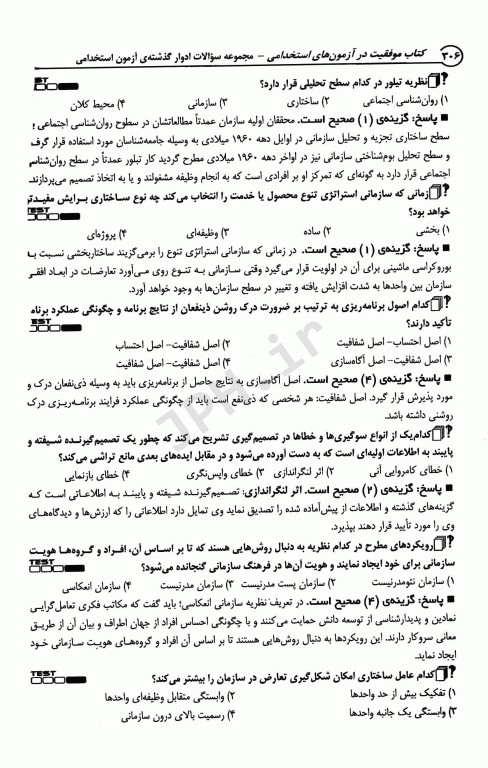 ۳۰۶ کتاب موفقیت در آزمون‌های استخدامی – مجموعه سؤالات ادوار گذشته‌ی آزمون استخدامی
نظریه تیلور در کدام سطح تحلیلی قرار دارد؟
۱) روان‌شناسی اجتماعی ۲) ساختاری ۳) سازمانی ۴) محیط کلان
■ پاسخ: گزینه‌ی (۱) صحیح است. محققان اولیه سازمان عمدتاً مطالعاتشان در سطوح روان‌شناسی اجتماعی و
سطح ساختاری تجزیه و تحلیل سازمانی در اوایل دهه ۱۹۶۰ میلادی به وسیله جامعه‌شناسان مورد استفاده قرار گرف
و سطح تحلیل بوم‌شناختی سازمانی نیز در اواخر دهه ۱۹۶۰ میلادی مطرح گردید کار تیلور عمدتاً در سطح روان‌شناس
اجتماعی قرار دارد به گونه‌ای که تمرکز او بر افرادی است که به انجام وظیفه مشغولند و یا به اتخاذ تصمیم می‌پردازند.
زمانی که سازمانی استراتژی تنوع محصول یا خدمت را انتخاب می‌کند چه نوع ساختاری برایش مفیدتر
خواهد بود؟ TEST
۱) بخشی ۲) ساده ۳) وظیفه‌ای ۴) پروژه‌ای
■ پاسخ: گزینه‌ی (۱) صحیح است. در زمانی که سازمانی استراتژی تنوع را برمی‌گزیند ساختاربخشی نسبت به
بوروکراسی ماشینی برای آن در اولویت قرار می‌گیرد وقتی سازمانی به تنوع روی می‌آورد تعارضات در ابعاد افقی
سازمان بین واحدها به شدت افزایش یافته و تغییر در سطح سازمان‌ها به وجود خواهد آورد.
کدام اصول برنامه‌ریزی به ترتیب بر ضرورت درک روشن ذینفعان از نتایج برنامه و چگونگی عملکرد برنامه
تأکید دارند؟ TEST
۱) اصل احتساب– اصل شفافیت ۲) اصل شفافیت– اصل احتساب
۳) اصل شفافیت– اصل آگاه‌سازی ۴) اصل شفافیت– اصل شفافیت
■ پاسخ: گزینه‌ی (۴) صحیح است. اصل آگاه‌سازی به نتایج حاصل از برنامه‌ریزی باید به وسیله ذی‌نفعان درک و
مورد پذیرش قرار گیرد. اصل شفافیت: هر شخصی که ذی‌نفع است باید از چگونگی عملکرد فرایند برنامه‌ریزی درک
روشنی داشته باشد.
کدام‌یک از انواع سوگیری‌ها و خطاها در تصمیم‌گیری تشریح می‌کند که چطور یک تصمیم‌گیرنده شیفته و
پایبند به اطلاعات اولیه‌ای است که به دست آورده می‌شود و در مقابل ایده‌های بعدی مانع تراشی می‌کند؟
۱) خطای کامروایی آنی ۲) اثر لنگراندازی ۳) خطای واپس‌نگری ۴) خطای بازنمایی
■ پاسخ: گزینه‌ی (۲) صحیح است. اثر لنگراندازی: تصمیم‌گیرنده شیفته و پایبند به اطلاعاتی است که
گزینه‌های گذشته و اطلاعات از پیش‌آماده شده را تصدیق نماید وی تمایل دارد اطلاعاتی را که ارزش‌ها و دیدگاه‌های
وی را مورد تأیید قرار دهند بپذیرد.
رویکردهای مطرح در کدام نظریه به دنبال روش‌هایی هستند که تا بر اساس آن، افراد و گروه‌ها هویت
سازمانی برای خود ایجاد نمایند و هویت آن‌ها در فرهنگ سازمانی گنجانده می‌شود؟ TEST
۱) سازمان نئومدرنیست ۲) سازمان پست مدرنیست ۳) سازمان مدرنیست ۴) سازمان انعکاسی
■ پاسخ: گزینه‌ی (۴) صحیح است. در تعریف نظریه سازمانی انعکاسی؛ باید گفت که مکاتب فکری تعامل‌گرایی
نمادین و پدیدارشناسی از توسعه دانش حمایت می‌کنند و با چگونگی احساس افراد از جهان اطراف و بیان آن از طریق
معانی سروکار دارند. این رویکردها به دنبال روش‌هایی هستند تا بر اساس آن افراد و گروه‌های هویت سازمانی خود
ایجاد نماید.
کدام عامل ساختاری امکان شکل‌گیری تعارض در سازمان را بیشتر می‌کند؟ TEST
۱) تفکیک بیش از حد واحدها ۲) وابستگی متقابل وظیفه‌ای واحدها
۳) وابستگی یک جانبه واحدها ۴) رسمیت بالای درون سازمانی
JPM.ir